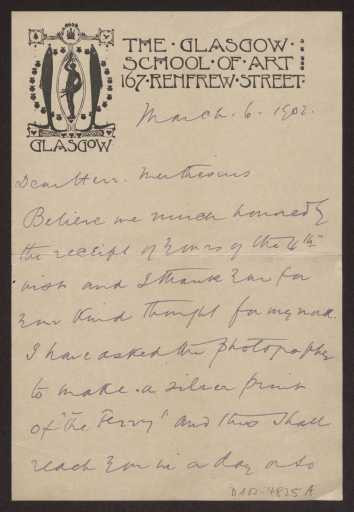 THE · GLASGOW ·
SCHOOL · OF · ART
167 · RENFREW · STREET ·
GLASGOW
March. 6. 1902.
Dear Herr. Muthesius
Believe me much honored by
the receipt of yours of the 4th
inst and I thank you for
your kind thought for my work.
I have asked the photographer
to make a silver print
of "The Ferry" and this shall
reach you in a day or so